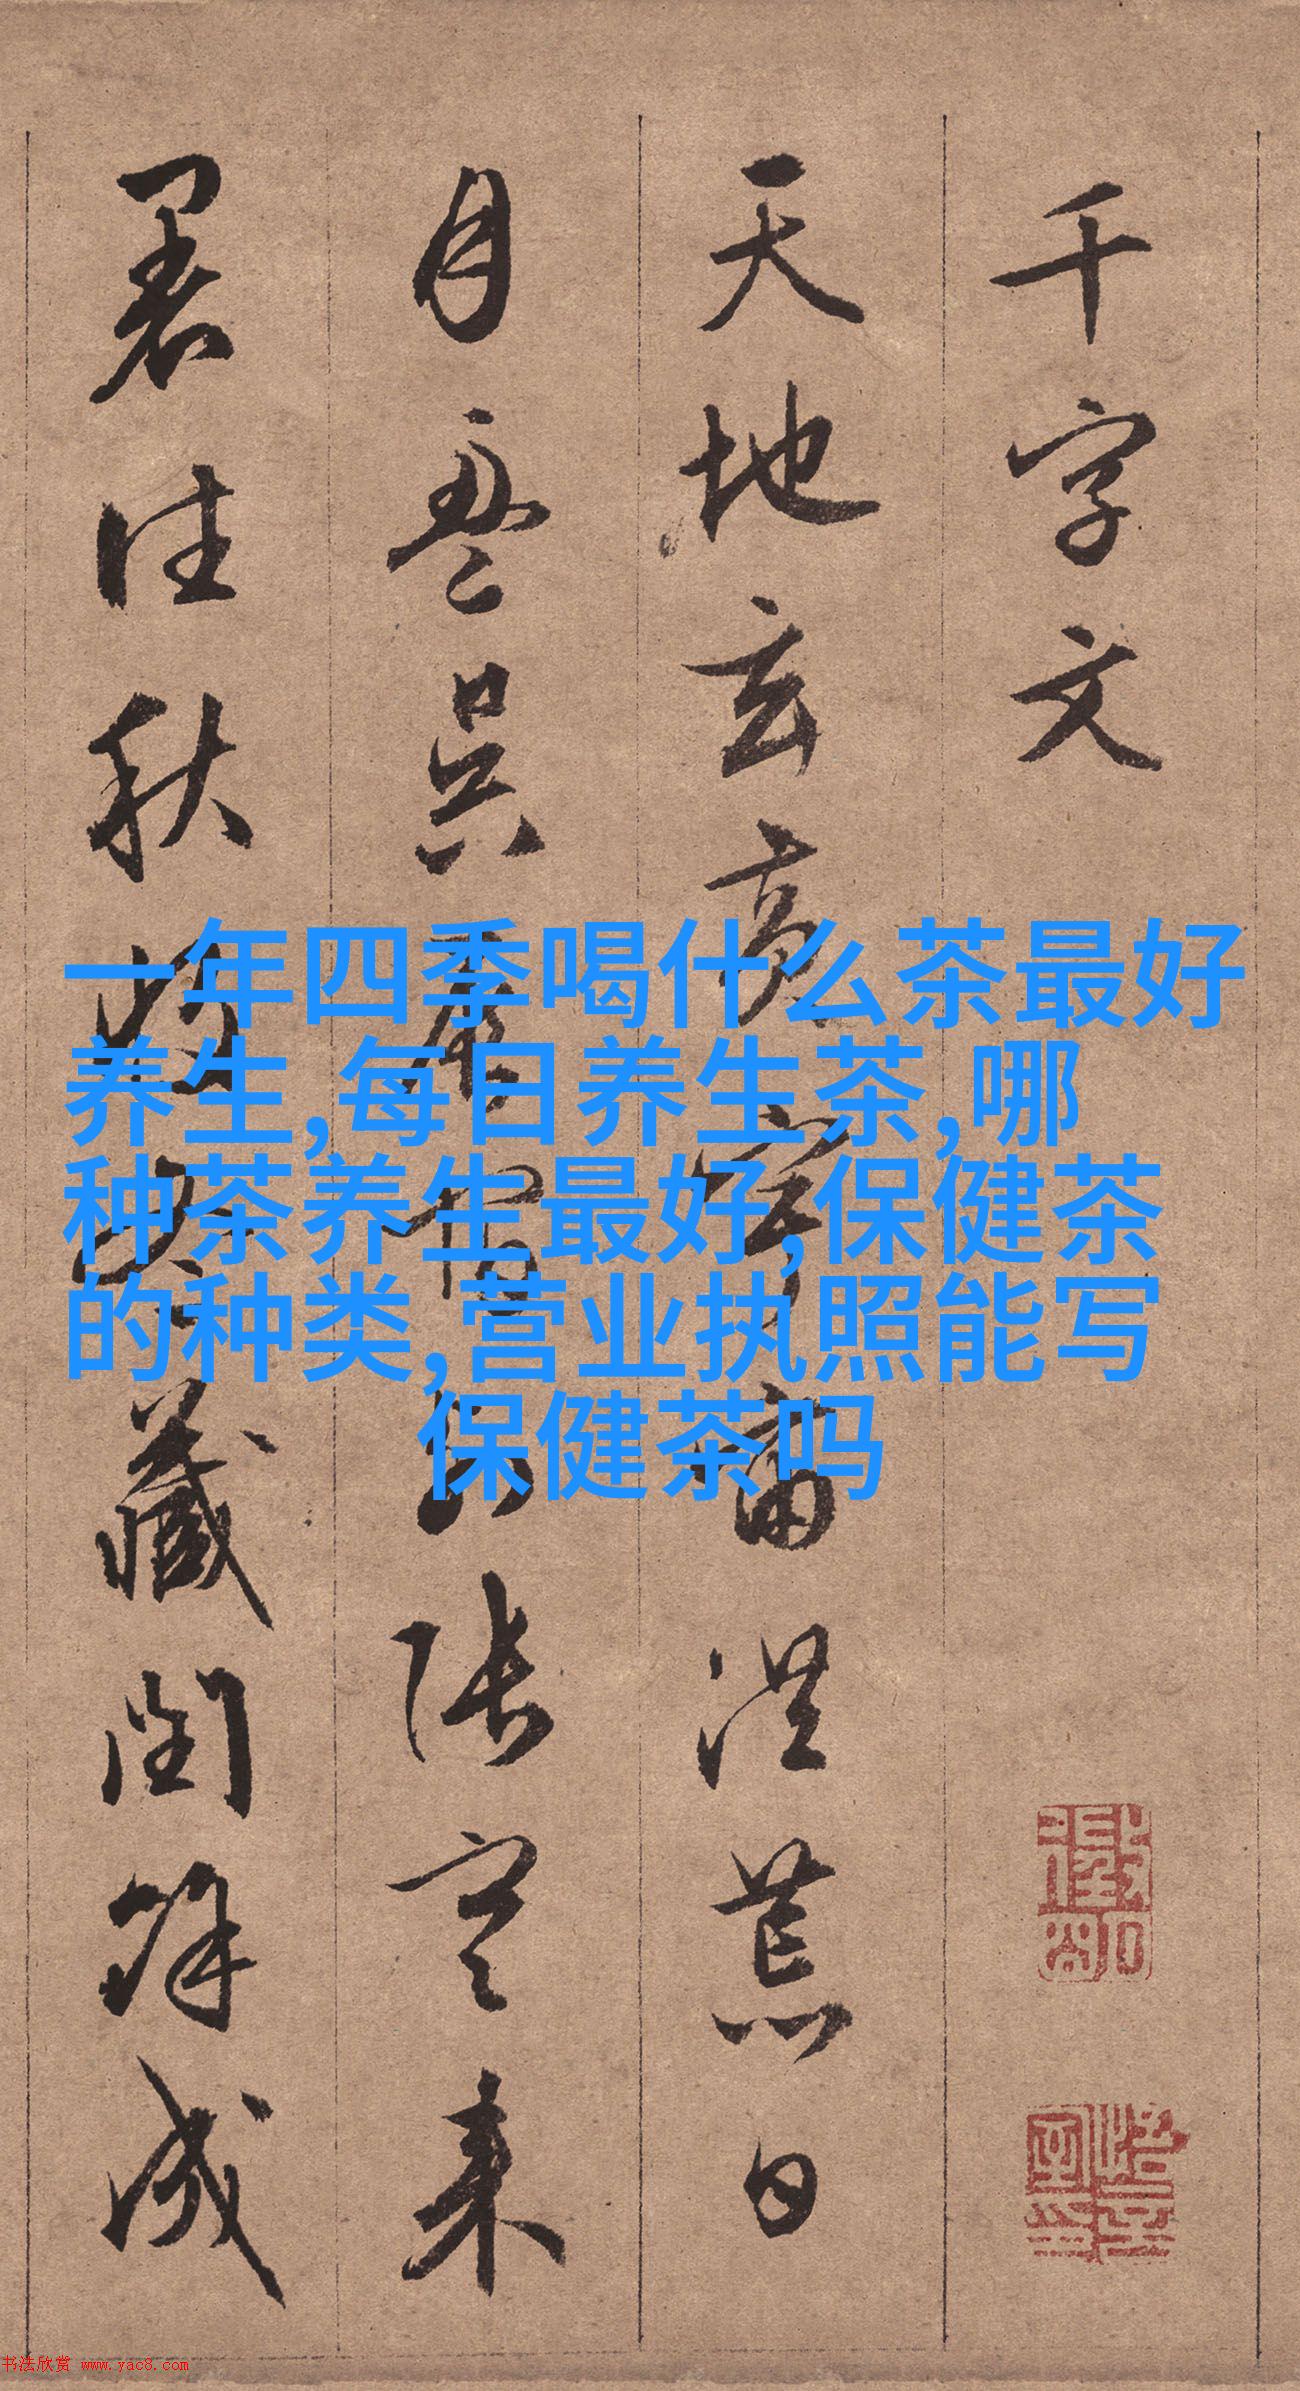 千字文
天地玄黄宇宙洪荒日
月盈昃辰宿列张寒来
暑往秋收冬藏闰余成
一年四季喝什么茶最好
养生,每日养生茶,哪
种茶养生最好,保健茶
的种类,营业执照能写
保健茶吗
书法欣赏 www.yac8.com